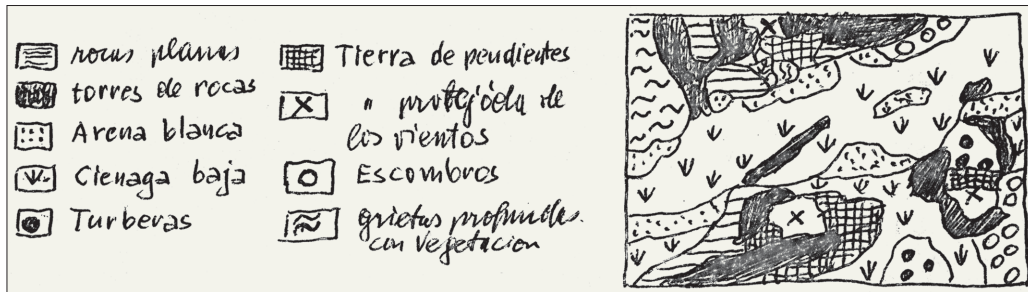 rocas planas
torres de rocas
Arena blanca
Cienaga baja
Turberas
Tierra de pendientes
" protejida de
los vientos
Escombros
grietas profundas
con vegetacion